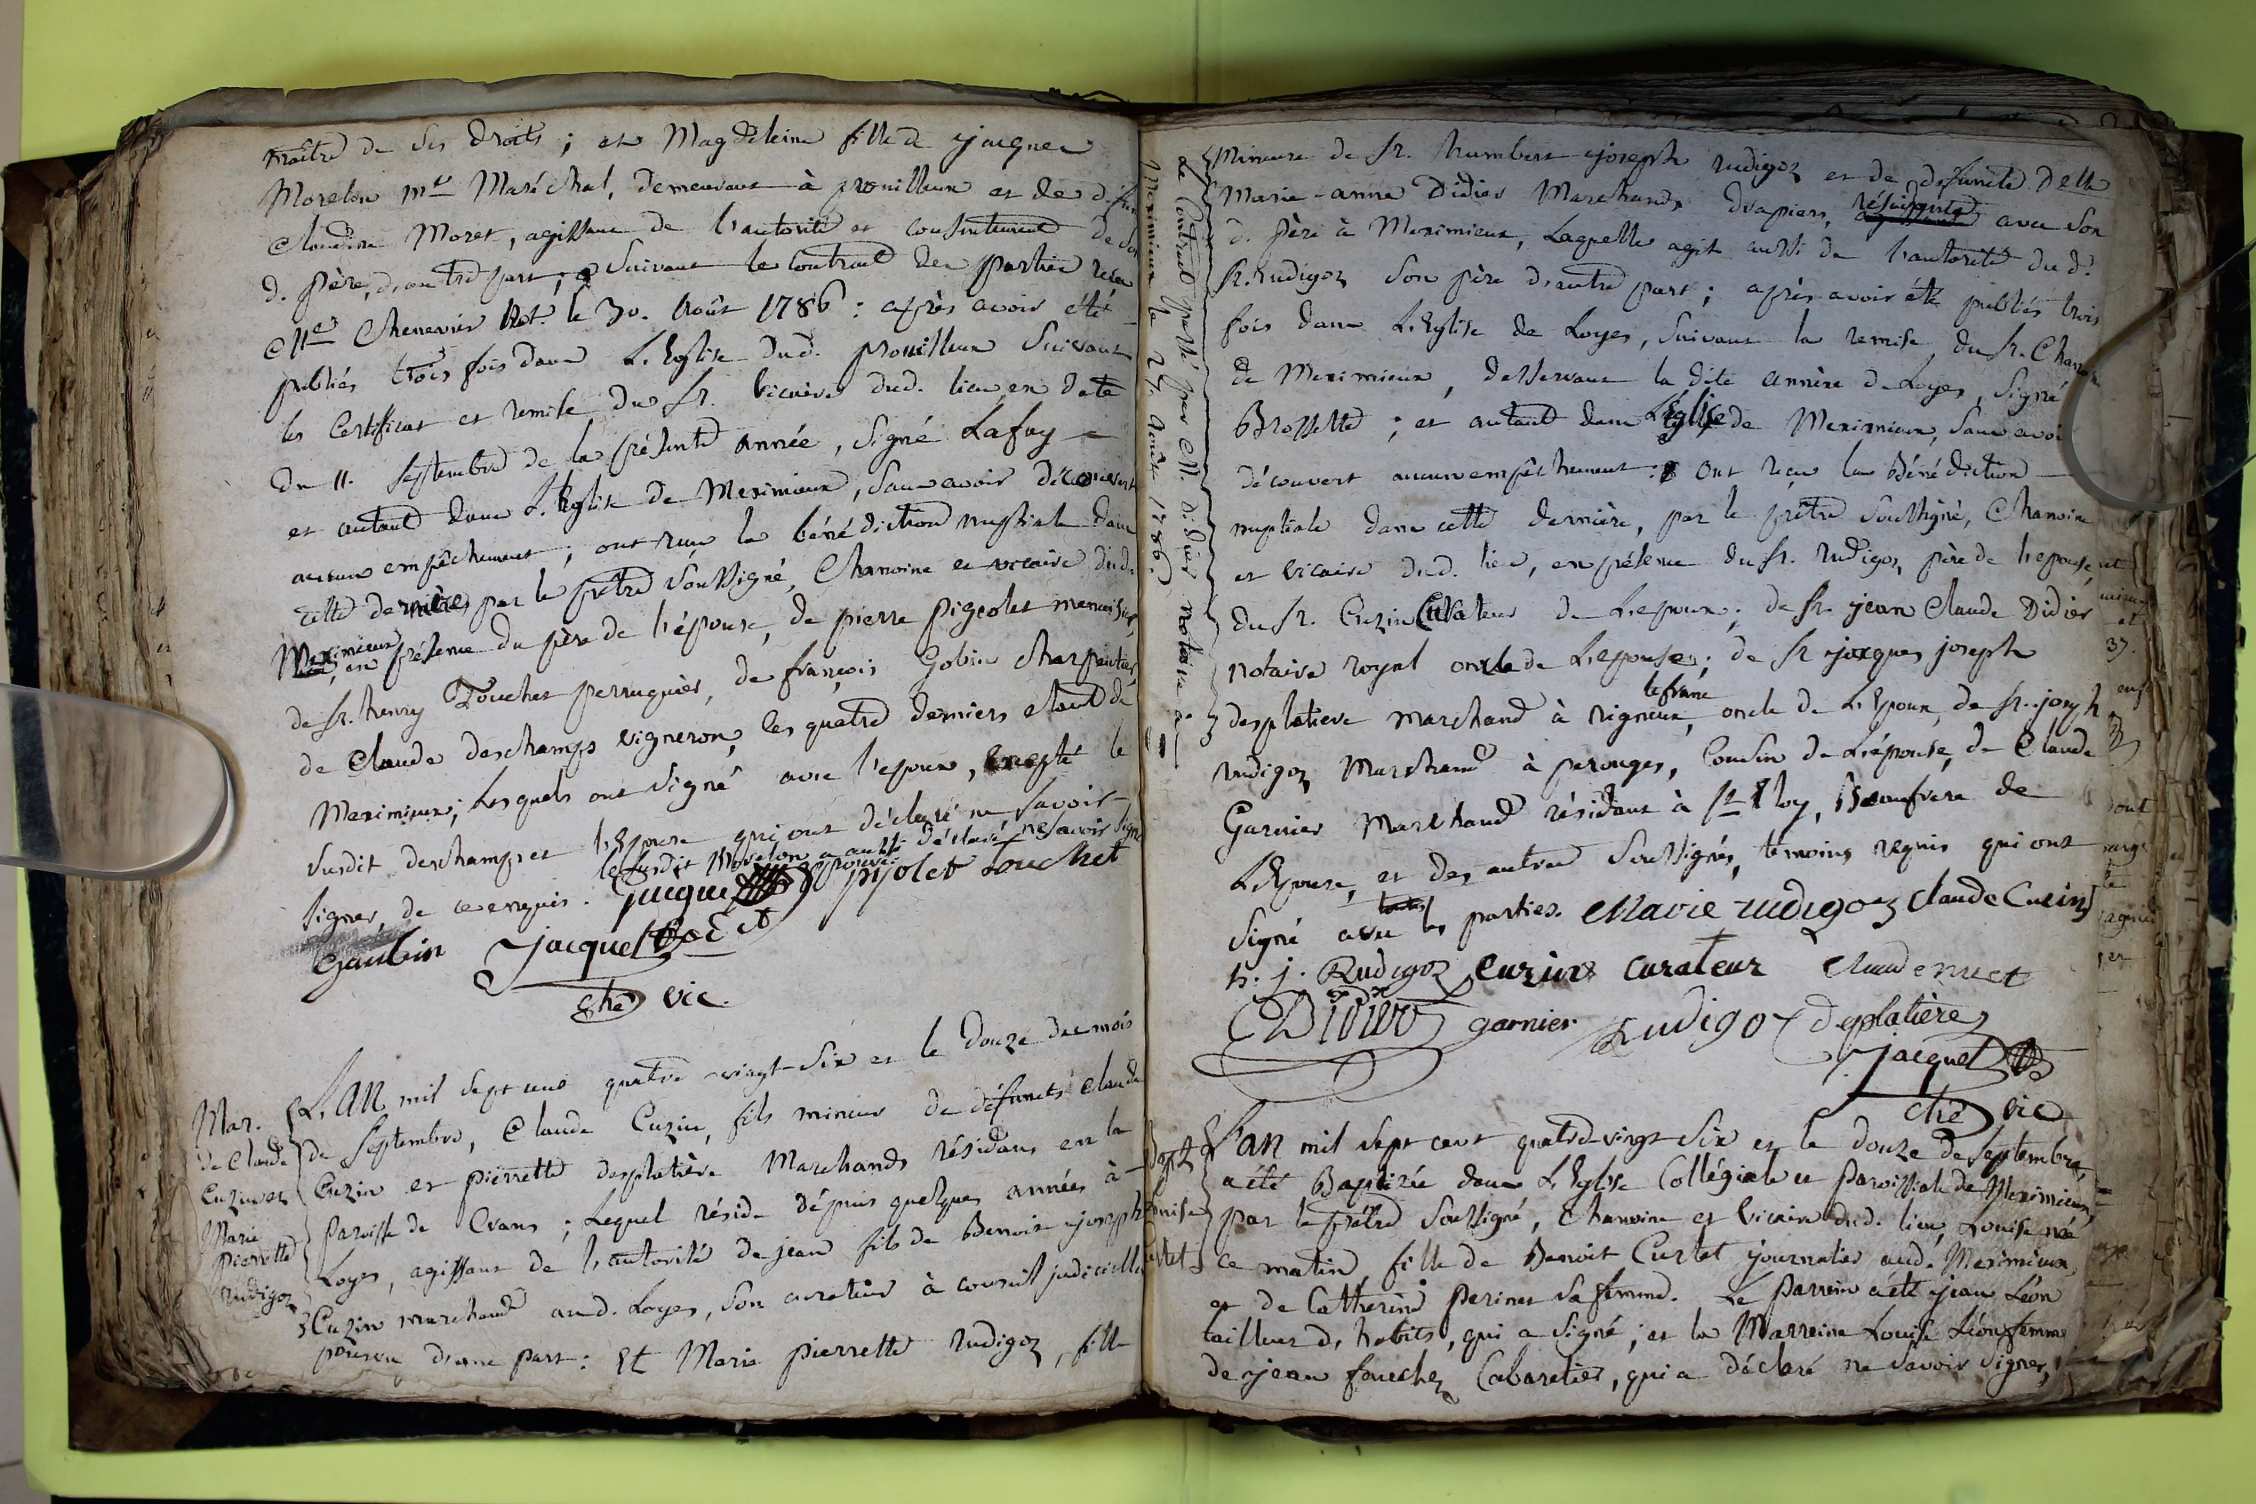 maître de ses droits ; et Magdeleine fille de jacques
Morelon me Maréchal, demeurant à prouilleux et de défun
Claudine Moret, agissant de l'autorité et consentement de son
d. père, d'autre part ; suivant le contract des parties reçu
Me Chenevier Not. le 30. Août 1786 : après avoir été
publiés trois fois dans L'Eglise dud. prouilleux suivant
les Certificat et remise du Sr. vicaire dud. lieu, en date
du 11. septembre de la présente année, signé Lafay
et autant dans L'Eglise de Meximieux, sans avoir découvert
aucun empêchement ; ont reçu la bénédiction nuptiale dans
cette dernière, par le prêtre soussigné, Chanoine et vicaire dud.
Meximieux, en présence du père de l'épouse, de pierre pigeolet menuisier,
de Sr. henry Touchet perruquier, de françois Gobin charpentier,
de Claude deschamps vigneron, les quatre derniers étant de
Meximieux ; Lesquels ont signé avec l'epoux, excepté le
susdit deschamps et l'Epouse qui ont déclaré ne savoir
le susdit Morelon a aussi déclaré ne savoir signer
signer, de ce enquis. approuvé.
jacque pijolet touchet
Gaubin jacquet
che vic.
Mar.
de Claude
Cuzin et
Marie
pierrette
rudigoz
L'AN mil sept cens quatre vingt-six et le douze du mois
de septembre, Claude Cuzin, fils mineur de défunts Claude
Cuzin et pierrette desplatière Marchands résidans en la
paroisse de Crans ; Lequel réside dépuis quelques années à
Loyes, agissant de l'autorité de jean fils de Benoit joseph
Cuzin marchand aud. Loyes, son curateur à conseil judicielle
pourvu d'une part : Et Marie pierrette rudigoz, fille
de Contract passé par M. didier notaire à
Meximieux le 27. août 1786.
Mineure de Sr. humbert joseph rudigoz et de defuncte delle
Marie-anne Didier Marchands drapiers, résidente avec son
d. père à Meximieux, Laquelle agit aussi de l'autorité dud.
Sr. rudigoz son père d'autre part ; après avoir été publiés trois
fois dans L'Eglise de Loyes, suivant la remise du Sr. Chanoi
de Meximieux, desservant la dite annèxe de Loyes, signé
Brossette ; et autant dans L'Eglise de Meximieux, sans avoi
découvert aucun empêchement : ont reçu la Bénédiction
nuptiale dans cette dernière, par le prêtre soussigné, Chanoine
et vicaire dud. lieu, en présence du Sr. rudigoz, père de l'epouse,
du Sr. Cuzin Curateur de L'epoux ; de Sr. jean Claude Didier
notaire royal oncle de L'epouse ; de Sr jacques joseph
desplatieve marchand à rigneux le franc, oncle de L'Epoux, de Sr. joseph
rudigoz Marchand à perouges, Cousin de L'épouse, de Claude
Garnier Marchand résidant à St Eloy, Beaufrere de
L'Epouse, et des autres soussignés, témoins requis qui ont
signé avec les parties. Marie rudigoz Claude Cuzin
h. j. Rudigoz Cuzin curateur Claude nuet
CDidier garnier Rudigoz desplatière
jacquet
che vic
Bapt
Louise
Curtet
L'AN mil sept cens quatre-vingt six et le douze de septembre,
a été Baptizée dans L'Eglise Collégiale et paroissiale de Meximieux,
par le prêtre soussigné, Chanoine et vicaire dud. lieu, Louise née
ce matin fille de Benoit Curtet journalier aud. Meximieux,
et de Catherine perinet sa femme. Le parrein a été jean Léon
tailleur d'habits, qui a signé ; et la Marreine Louise Léon femme
de jean fouchez Cabaretier, qui a déclaré ne savoir signer,